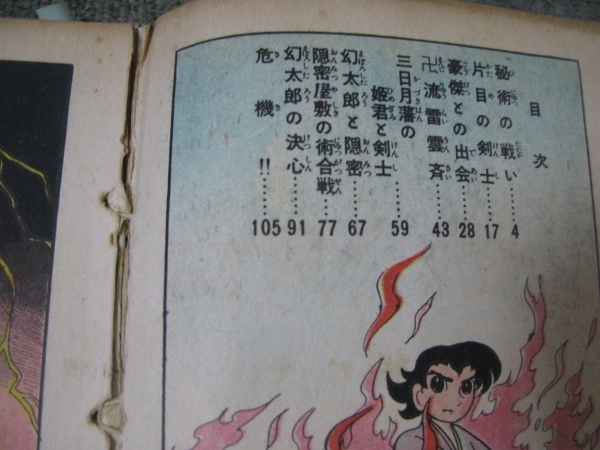 目次
秘術の戦い……4
片目の剣士……17
豪傑との出会……28
卍流雷雲斉……43
三日月藩の
姫君と剣士……59
幻太郎と隠密……67
隠密屋敷の術合戦……77
幻太郎の決心……91
危機!!……105